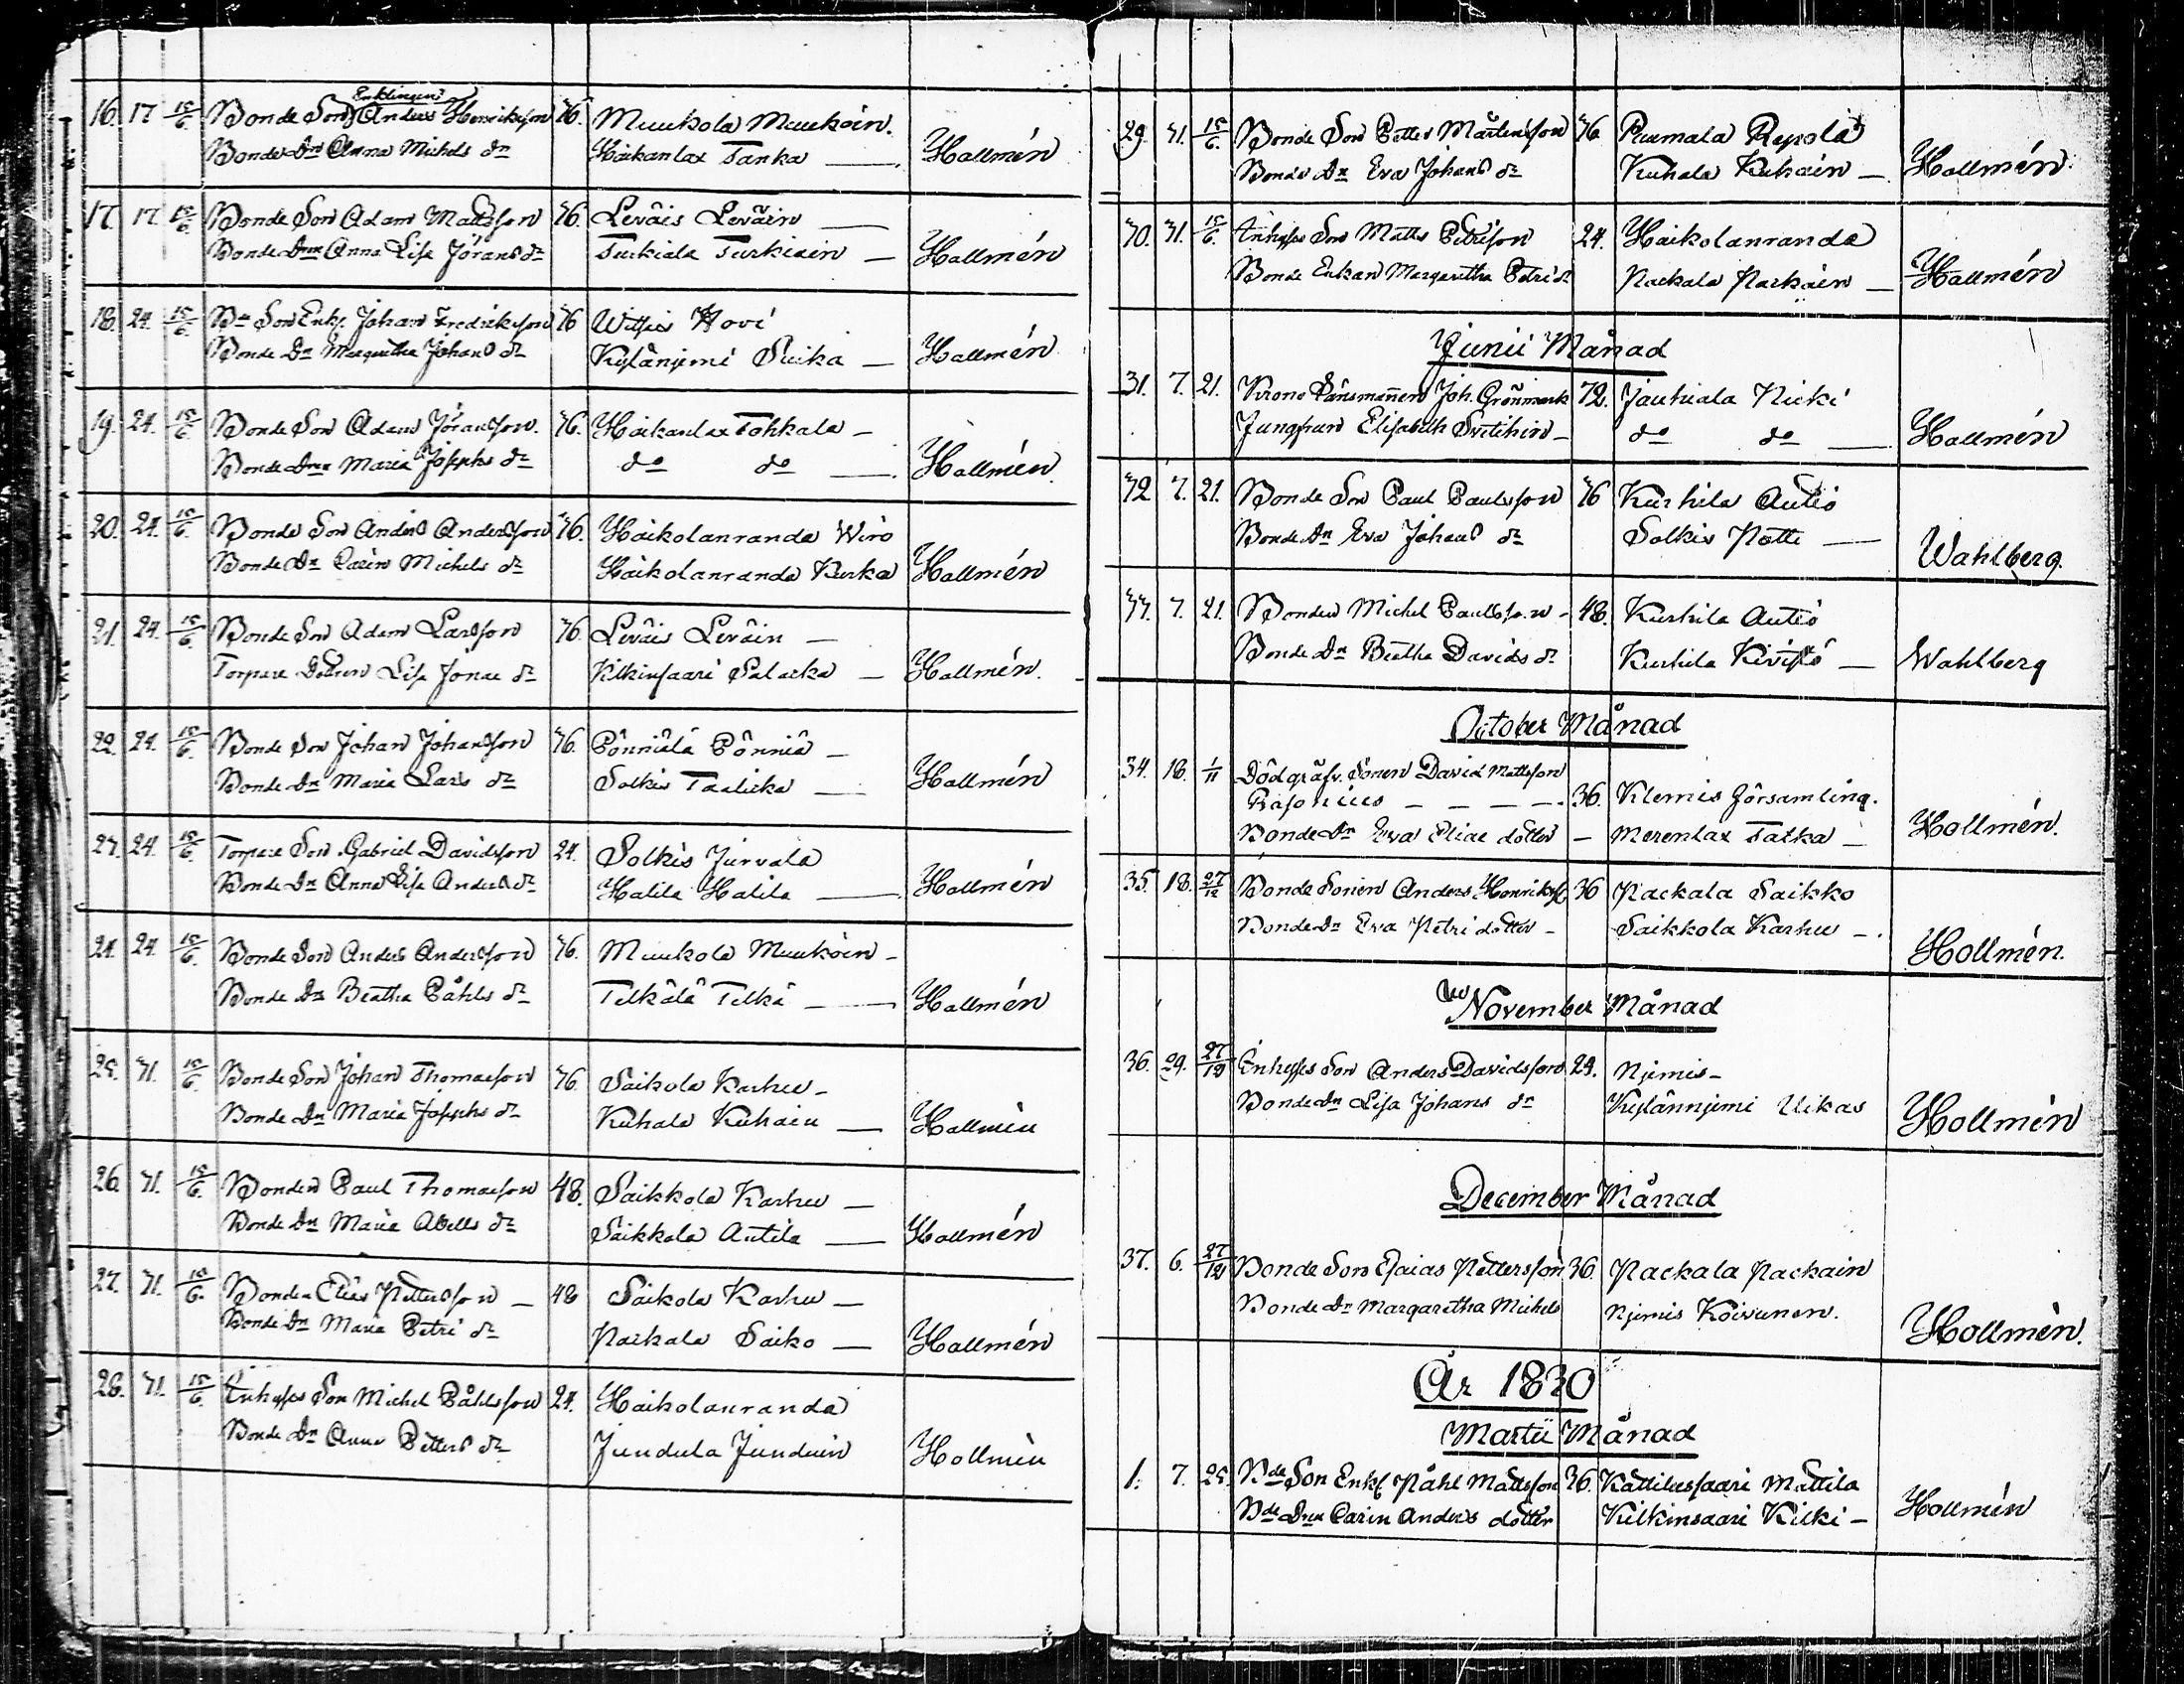 Enklingen
16. 17 15/6. Bonde Son Anders Henrikson 36. Muukola Muukoin.
Bonde Dr Anna Michels dr Haikanlax Tanka — Hallmén
17. 17. 15/6. Bonde Son Adam Mattsson 36. Leväis Leväin —
Bonde Drn Anna Lisa Jörans dr Turkiala Turkiain — Hallmén
18. 24. 15/6. Bde Son Enkl. Johan Fredrikson 36 Hovi
Bonde Dr Margaretha Johans dr Kylänjemi Suika — Hallmén
19. 24. 15/6. Bonde Son Adam Jöransson. 36. Haikanlax Tohkala —
Bonde Drn Maria Josephs dr do do — Hallmén.
20. 24. 15/6. Bonde Son Anders Andersson 36. Haikolanranda Wiro
Bonde Dr Carin Michels dr Haikolanranda Kurka Hallmén
21. 24. 15/6. Bonde Son Adam Larsson 36. Leväis Leväin —
Torpare Lisa Jonae dr Kilkinsaari Salacka — Hallmén.
22. 24. 15/6. Bonde Son Johan Johansson 36. Pönniälä Pönniä —
Bonde Dr Maria Lars dr Solkis Taalicka — Hallmén
23. 24. 15/6. Torpare Son Gabriel Davidsson 24. Solkis Jurvala
Bonde Dr Anna Lisa Anders dr Halila Halila — Hallmén
24. 24. 15/6. Bonde Son Anders Andersson 36. Muukola Muukoin —
Bonde Dr Beatha Påhls dr Telkälä Telkä — Hallmén
25. 31. 15/6. Bonde Son Johan Thomasson 36. Saikola Karhu —
Bonde Dr Maria Josephs dr Kuhala Kuhain — Hallmén
26. 31. 15/6. Bonden Paul Thomasson 48. Saikkola Karhu —
Bonde Dr Maria Abells dr Saikkola Antila — Hallmén
27. 31. 15/6. Bonden Elias Pettersson — 48 Saikola Karhu —
Bonde Dr Maria Petri dr Packala Saiko — Hallmén
28. 31. 15/6. Inhyses Son Michel Påhlsson 24. Haikolanranda
Bonde Dr Anna Petters dr Jundula Junduin Hollmén
29. 31. 15/6. Bonde Son Petter Mårtensson 36 Pusmala Repola
Bonde Dr Eva Johans dr Kuhala Kuhain — Hallmén.
30. 31. 15/6. Inhyses Son Matts Petrison 24. Haikolanranda
Bonde Enkan Margaretha Petri dr Packala Packain — Hallmén
Junii Månad
31. 7. 21. Krono Länsmannen Joh. Grönmark 72. Jauhiala Nicki
Jungfrun Elisabeth — do do — Hallmén
32 7. 21. Bonde Son Paul Paulsson 36 Kurhila Autio
Bonde Dr Eva Johans dr Solkis Potti — Wahlberg.
33. 7. 21. Bonden Michel Paulsson — 48. Kurhila Autio
Bonde Dr Beatha Davids dr Kurhila Kivistö — Wahlberg
October Månad
34. 18. 1/11 Dödgräfv. Sonen David Mattsson
— — — — 36. Klemis församling.
Bonde Dr Eva Eliae dotter — Merenlax Tatka — Hollmén.
35. 18. 27/12 Bonde Sonen Anders Henriks 36 Packala Saikko
Bonde Dr Eva Petri dotter — Saikkola Karhu —. Hollmén.
November Månad
36. 29. 27/12 Inhyses Son Anders Davidsson 24. Njemis —
Bonde Dr Lisa Johans dr Kylännjemi Uikas Hollmén
December Månad
37. 6. 27/12 Bonde Son Esaias Pettersson 36. Packala Packain
Bonde Dr Margaretha Michels Njemis Koivunen. Hollmén.
År 1830
Martii Månad
1. 7. 25. Bde Son Enkl Påhl Mattsson 36. Kattilussaari Mattila
Bde Drn Carin Anders dotter Kilkinsaari Kilki — Hollmén